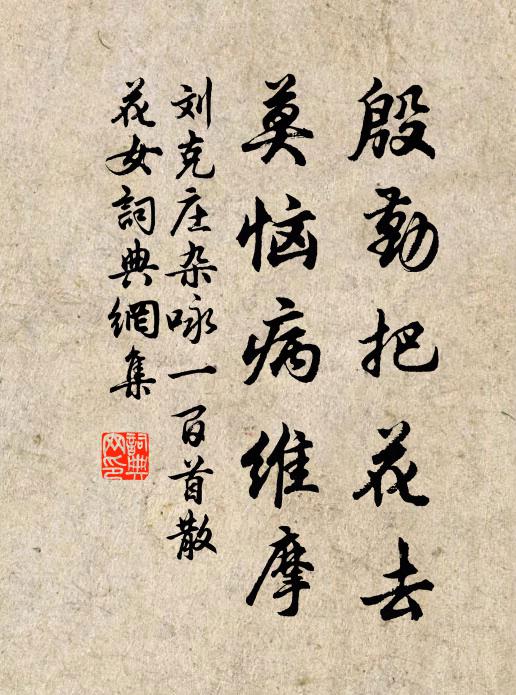 殷勤把花去
莫恼病维摩
刘克庄杂咏一百首散
花女詞典網集
詞典網印